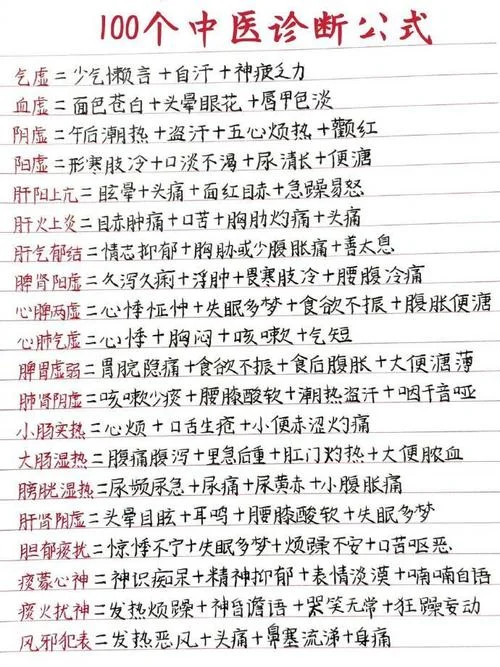 100个中医诊断公式
气虚=少气懒言+自汗+神疲乏力
血虚=面色苍白+头晕眼花+唇甲色淡
阴虚=午后潮热+盗汗+五心烦热+颧红
阳虚=形寒肢冷+口淡不渴+尿清长+便溏
肝阳上亢=眩晕+头痛+面红目赤+急躁易怒
肝火上炎=目赤肿痛+口苦+胸胁灼痛+头痛
肝气郁结=情志抑郁+胸胁或少腹胀痛+善太息
脾肾阳虚=久泻久痢+浮肿+畏寒肢冷+腰腹冷痛
心脾两虚=心悸怔忡+失眠多梦+食欲不振+腹胀便溏
心肺气虚=心悸+胸闷+咳嗽+气短
脾胃虚弱=胃脘隐痛+食欲不振+食后腹胀+大便溏薄
肺肾阴虚=咳嗽少痰+腰膝酸软+潮热盗汗+咽干音哑
小肠实热=心烦+口舌生疮+小便赤涩灼痛
大肠湿热=腹痛腹泻+里急后重+肛门灼热+大便脓血
膀胱湿热=尿频尿急+尿痛+尿黄赤+小腹胀痛
肝肾阴虚=头晕目眩+耳鸣+腰膝酸软+失眠多梦
胆郁痰扰=惊悸不宁+失眠多梦+烦躁不安+口苦呕恶
痰蒙心神=神识痴呆+精神抑郁+表情淡漠+喃喃自语
痰火扰神=发热烦躁+神昏谵语+哭笑无常+狂躁妄动
风邪犯表=发热恶风+头痛+鼻塞流涕+身痛